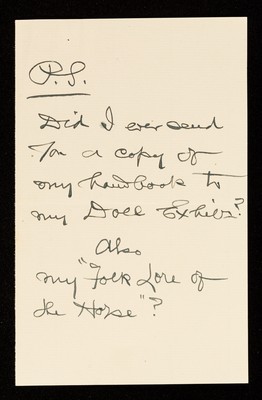 P.S.
Did I ever send
You a copy of
my handbook to
my Doll Exhibit?
Also
my "Folk Lore of
the Horse"?